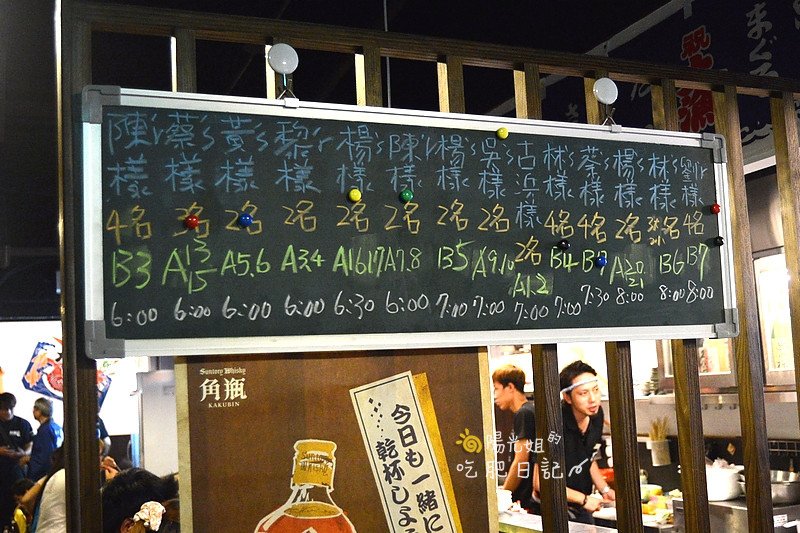 陳'r 蔡's 黃's 黎'r 楊's 陳'r 楊's 吳's 古浜 林's 蔡's 楊's 林's 劉'r
樣 樣 樣 樣 樣 樣 樣 樣 樣 樣 樣 樣 樣 樣
4名 3名 2名 2名 2名 2名 2名 2名 2名 4名 4名 2名 名 4名
B3 A13 15 A5.6 A3.4 A16.17 A7.8 B5 A9.10 A1.2 B4 B A20 21 B6 B7
6:00 6:00 6:00 6:00 6:30 6:00 7:00 7:00 7:00 7:00 7:30 8:00 8:00 8:00
まぐろ
Suntory Whisky
角瓶
KAKUBIN
今日も一緒に
乾杯しよ
陽光姐的
吃肥日記